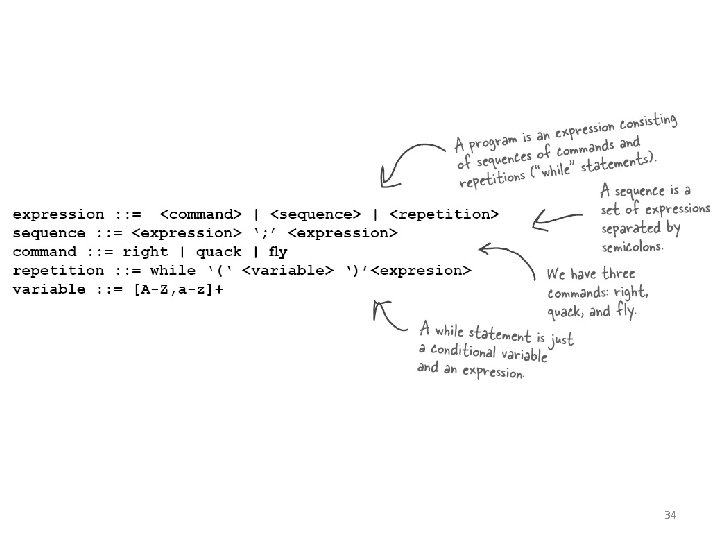 A program is an expression consisting
of sequences of commands and
repetitions ("while" statements).
A sequence is a
set of expressions
separated by
semicolons.
expression ::= <command> | <sequence> | <repetition>
sequence ::= <expression> ‘;’ <expression>
command ::= right | quack | fly
repetition ::= while ‘(‘ <variable> ‘)’<expresion>
variable ::= [A-Z,a-z]+
We have three
commands: right,
quack, and fly.
A while statement is just
a conditional variable
and an expression.
34